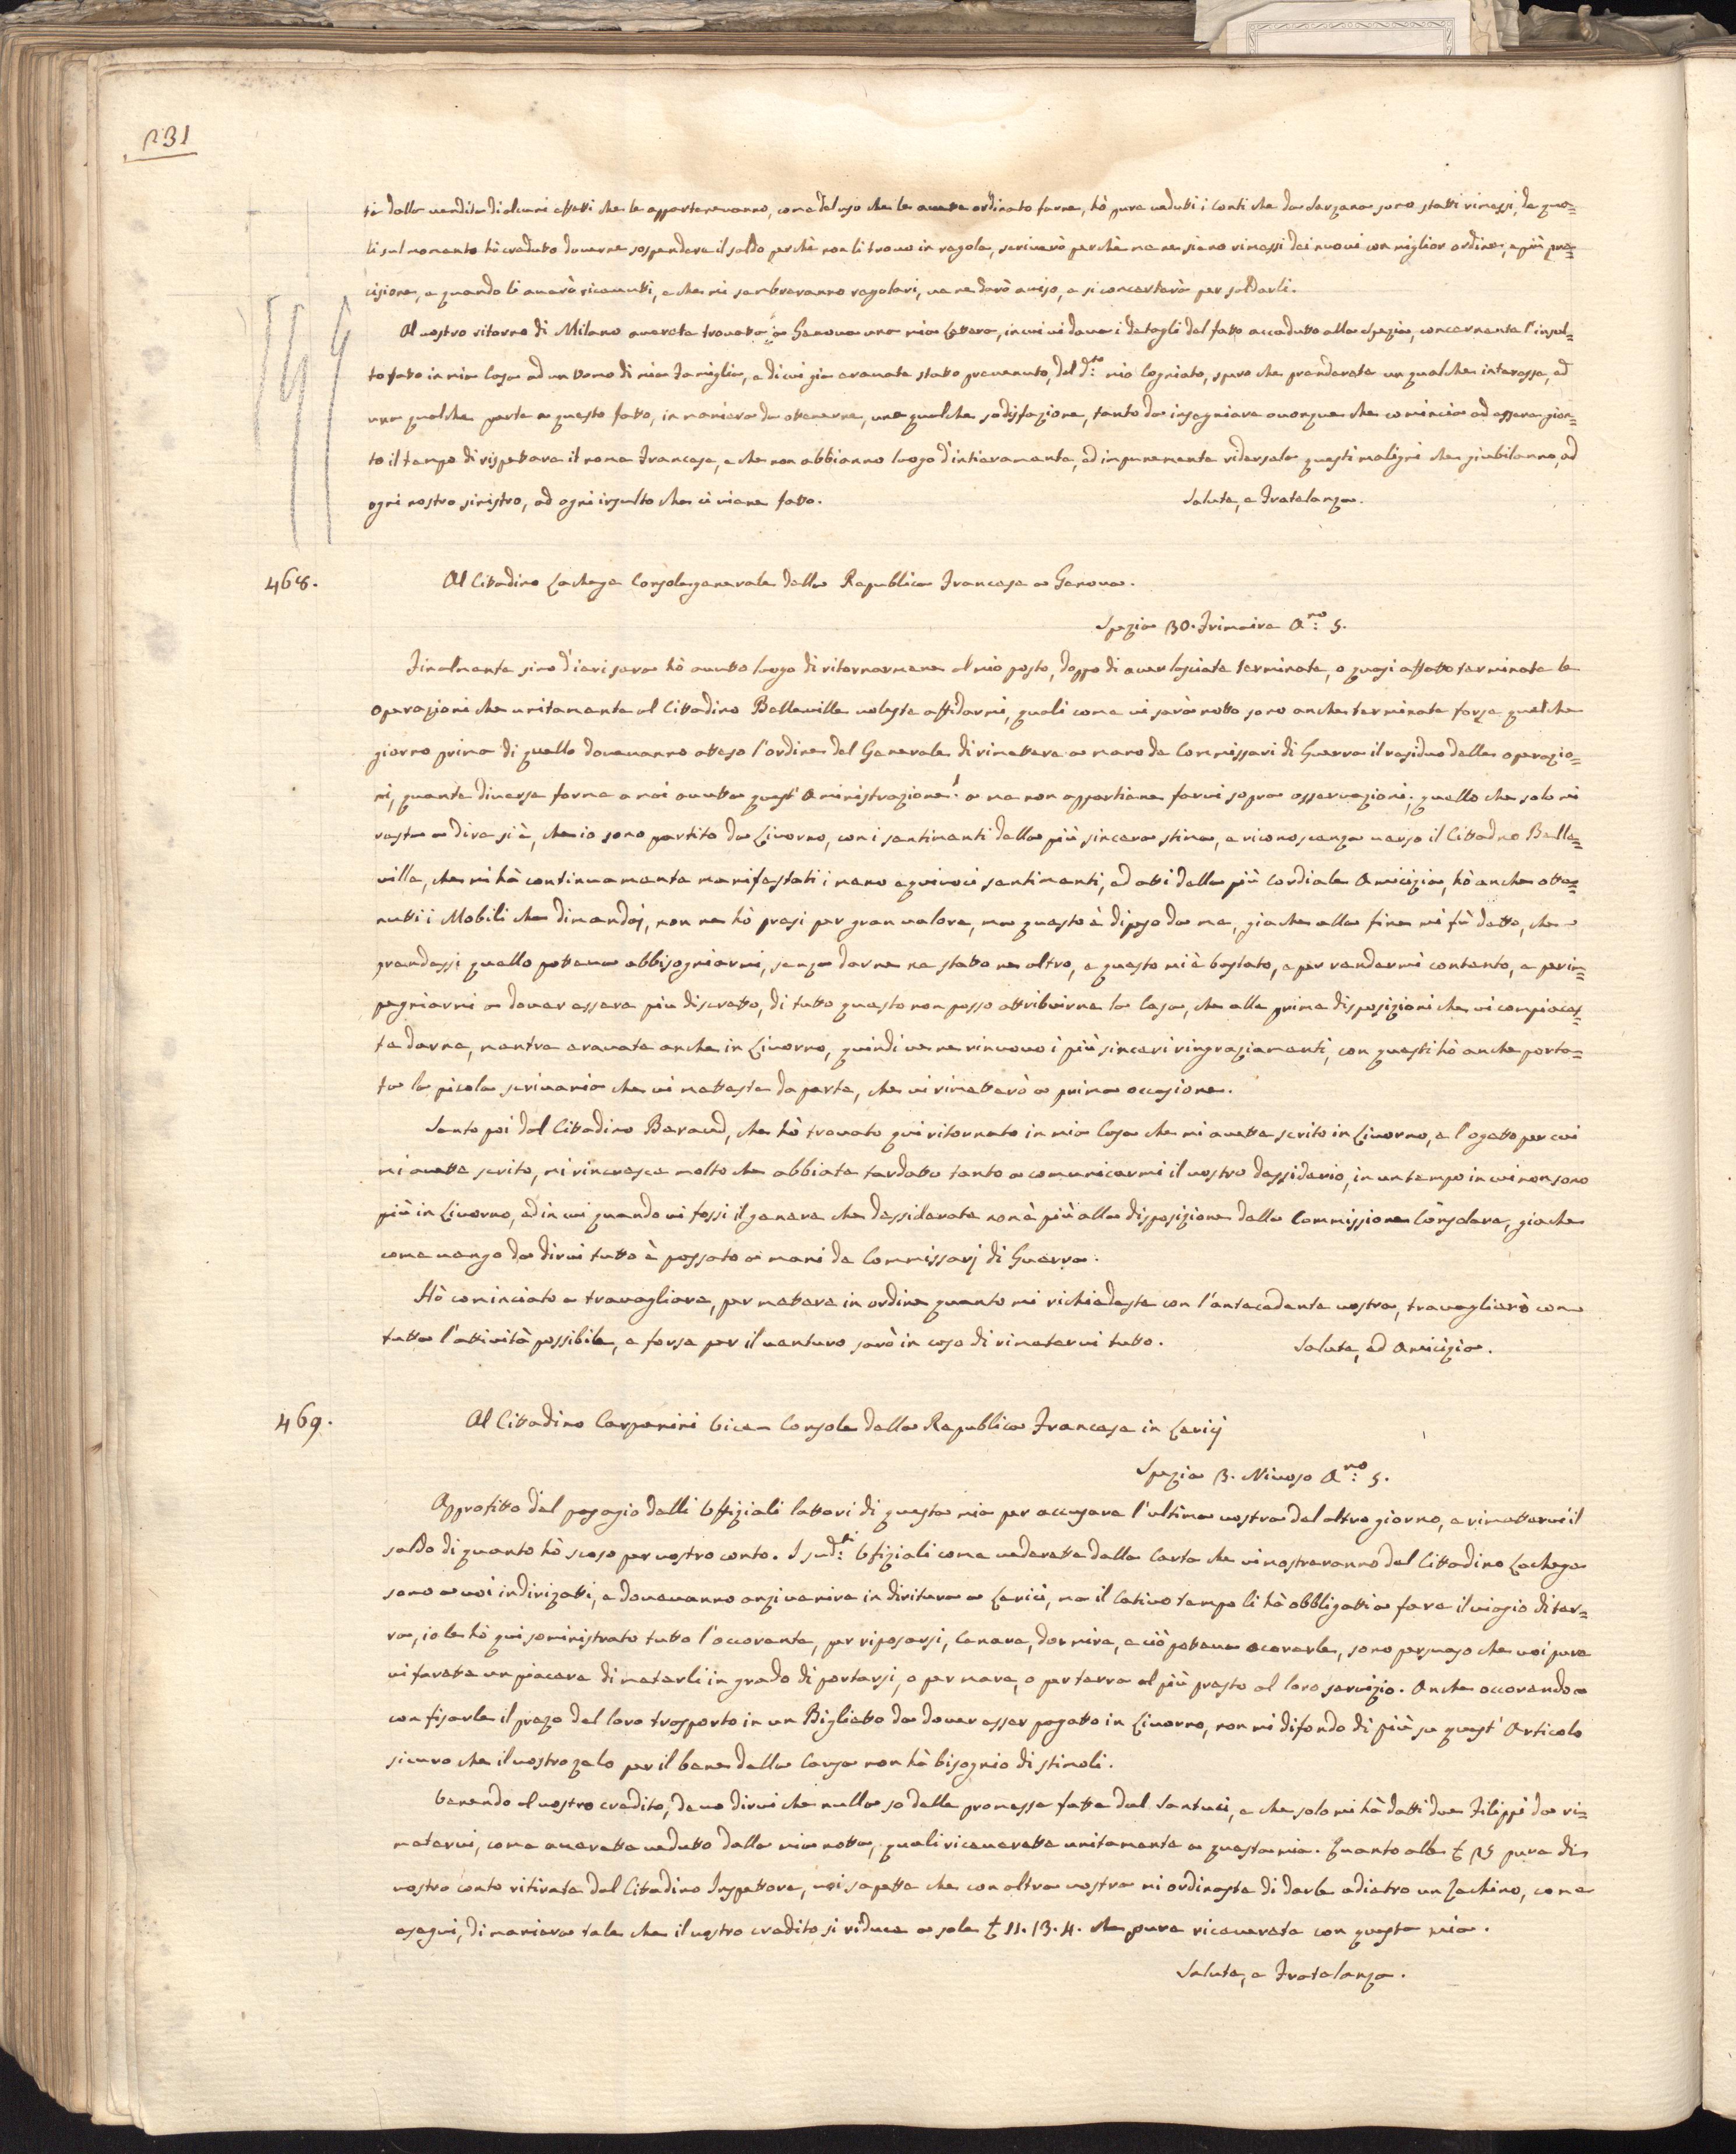 131
ti dalla vendita di alcuni effetti che le appartenevanno, come del uso che le avete ordinato farne, hò pure veduti i Conti che da Sarzana sono statti rimessi, de qua=
li sul momento hò creduto doverne sospendere il saldo perchè non li trovo in regola, scriverò perchè me ne siano rimessi dei nuovi con miglior ordine, e più pre=
cisione, e quando li averò ricevuti, e che mi sembreranno regolari, ve ne darò aviso, e si concerterà per saldarli.
Al vostro ritorno di Milano avrete trovatto a Genova una mia Lettera, in cui vi dava i detagli del fatto accadutto alla Spezia, concernente l'insul=
to fatto in mia Casa ad un Uomo di mia Famiglia, e di cui gia eravate stato prevenuto, dal d.to mio Cogniato, spero che prenderete un qualche interesse, ed
una qualche parte a questo fatto, in maniera da ottenerne, una qualche sodisfazione, tanto da insegniare a ovonque che comincia ad essere gion=
to il tempo di rispettare il nome Francese, e che non abbianno luogo d'intieramente, ed impunemente ridersele questi maligni che giubilanno, ad
ogni nostro sinistro, ad ogni insulto che ci viene fatto. Salute, e Fratelanza.
468. Al Cittadino Lachege Consolegenerale della Republica Francese a Genova.
Spezia 30. Frimaire A.no 5.
Finalmente sino d'ieri sera hò avutto luogo di ritornarmene al mio posto, doppo di aver lasciate terminate, o quasi affatto terminate le
operazioni che unitamente al Cittadino Belleville voleste affidarmi, quali come vi sarà notto sono anche terminate forse qualche
giorno prima di quello dovevanno atteso l'ordine del Generale di rimettere a mano de Commissari di Guerra il residuo delle operazio=
ni, quante diverse forme a mai avutta quest'Aministrazione! a me non appartiene farvi sopra osservazioni; quello che solo mi
resta a dire si è, che io sono partito da Livorno, con i sentimenti della più sincera stima, e riconoscenza verso il Cittadno Belle=
ville, che mi hà continuamente manifestati i meno equivoci sentimenti, ed atti della più Cordiale Amicizia, hò anche otte=
nutti i Mobili che dimandaj, non ne hò presi per gran valore, ma questo è dipeso da me, gia che alla fine mi fù detto, che
prendessi quello poteva abbisogniarmi, senza darne ne statto ne altro, e questo mi è bastato, e per rendermi contento, e perim=
pegniarmi a dover essere piu discretto, di tutto questo non posso attribuirne la Casa, che alle prime disposizioni che vi compiaces=
te darne, mentre eravate anche in Livorno, quindi ve ne rinuovo i più sinceri ringraziamenti, con questi hò anche porta=
to la picola scrivania che vi metteste da parte, che vi rimetterò a prima occasione.
Sento poi dal Cittadino Beraud, che hò trovato qui ritornato in mia Casa che mi avette scrito in Livorno, e l'ogetto per cui
mi avette scrito, mi rincresce molto che abbiate tardatto tanto a comunicarmi il vostro dessiderio, in un tempo in cui non sono
più in Livorno, ed in cui quando vi fossi il genere che dessiderate non è più alla disposizione della Commissione Consolare, gia che
come vengo da dirvi tutto è passato a mani de Commissarj di Guerra.
Hò cominciato a travagliare, per metere in ordine quanto mi richiedeste con l'antecedente vostra, travaglierò con
tutta l'attività possibile, e forse per il venturo sarò in caso di rimetervi tutto. Salute, ed Amicizia.
469. Al Cittadino Carpanini Vice Console della Republica Francese in Lerici
Spezia 3. Nivoso A.no 5.
Approfitto del passagio delli Uffiziali lattori di questa mia per accusare l'ultima vostra del altro giorno, e rimettervi il
saldo di quanto hò scoso per vostro conto. I sud.ti Uffiziali come vederette dalla Carta che vi mostreranno del Cittadino Lachege
sono a voi indirizatti, e dovevanno anzi venire in diritura a Lerici, ma il Cativo tempo li hà obbligatti a fare il viagio di ter=
ra, io le hò qui somministrato tutto l'occorente, per riposarsi, Cenare, dormire, e ciò poteva ocorerle, sono persuaso che voi pure
vi farete un piacere di metterli in grado di portarsi, o per mare, o per terra al più presto al loro servizio. Anche occorendo
con fisarle il prezo del loro trasporto in un Biglietto da dover esser pagatto in Livorno, non mi difondo di più su quest'Articolo
sicuro che il vostro zelo per il bene della Causa non hà bisognio di stimoli.
Venendo al vostro credito, devo dirvi che nulla so delle promesse fatte dal Santuci, e che solo mi hà datti due Filippi da ri=
metervi, come averette vedutto dalla mia notta, quali riceverette unitamente a questa mia. Quanto alle £ 15 pure di
vostro conto ritirate dal Cittadino Inspettore, voi sapette che con altra vostra mi ordinaste di darle adietro un Zechino, come
eseguì, di maniera tale che il vostro credito si riduce a sole £ 11. 13. 4. che pure riceverete con questa mia.
Salute, e Fratelanza.